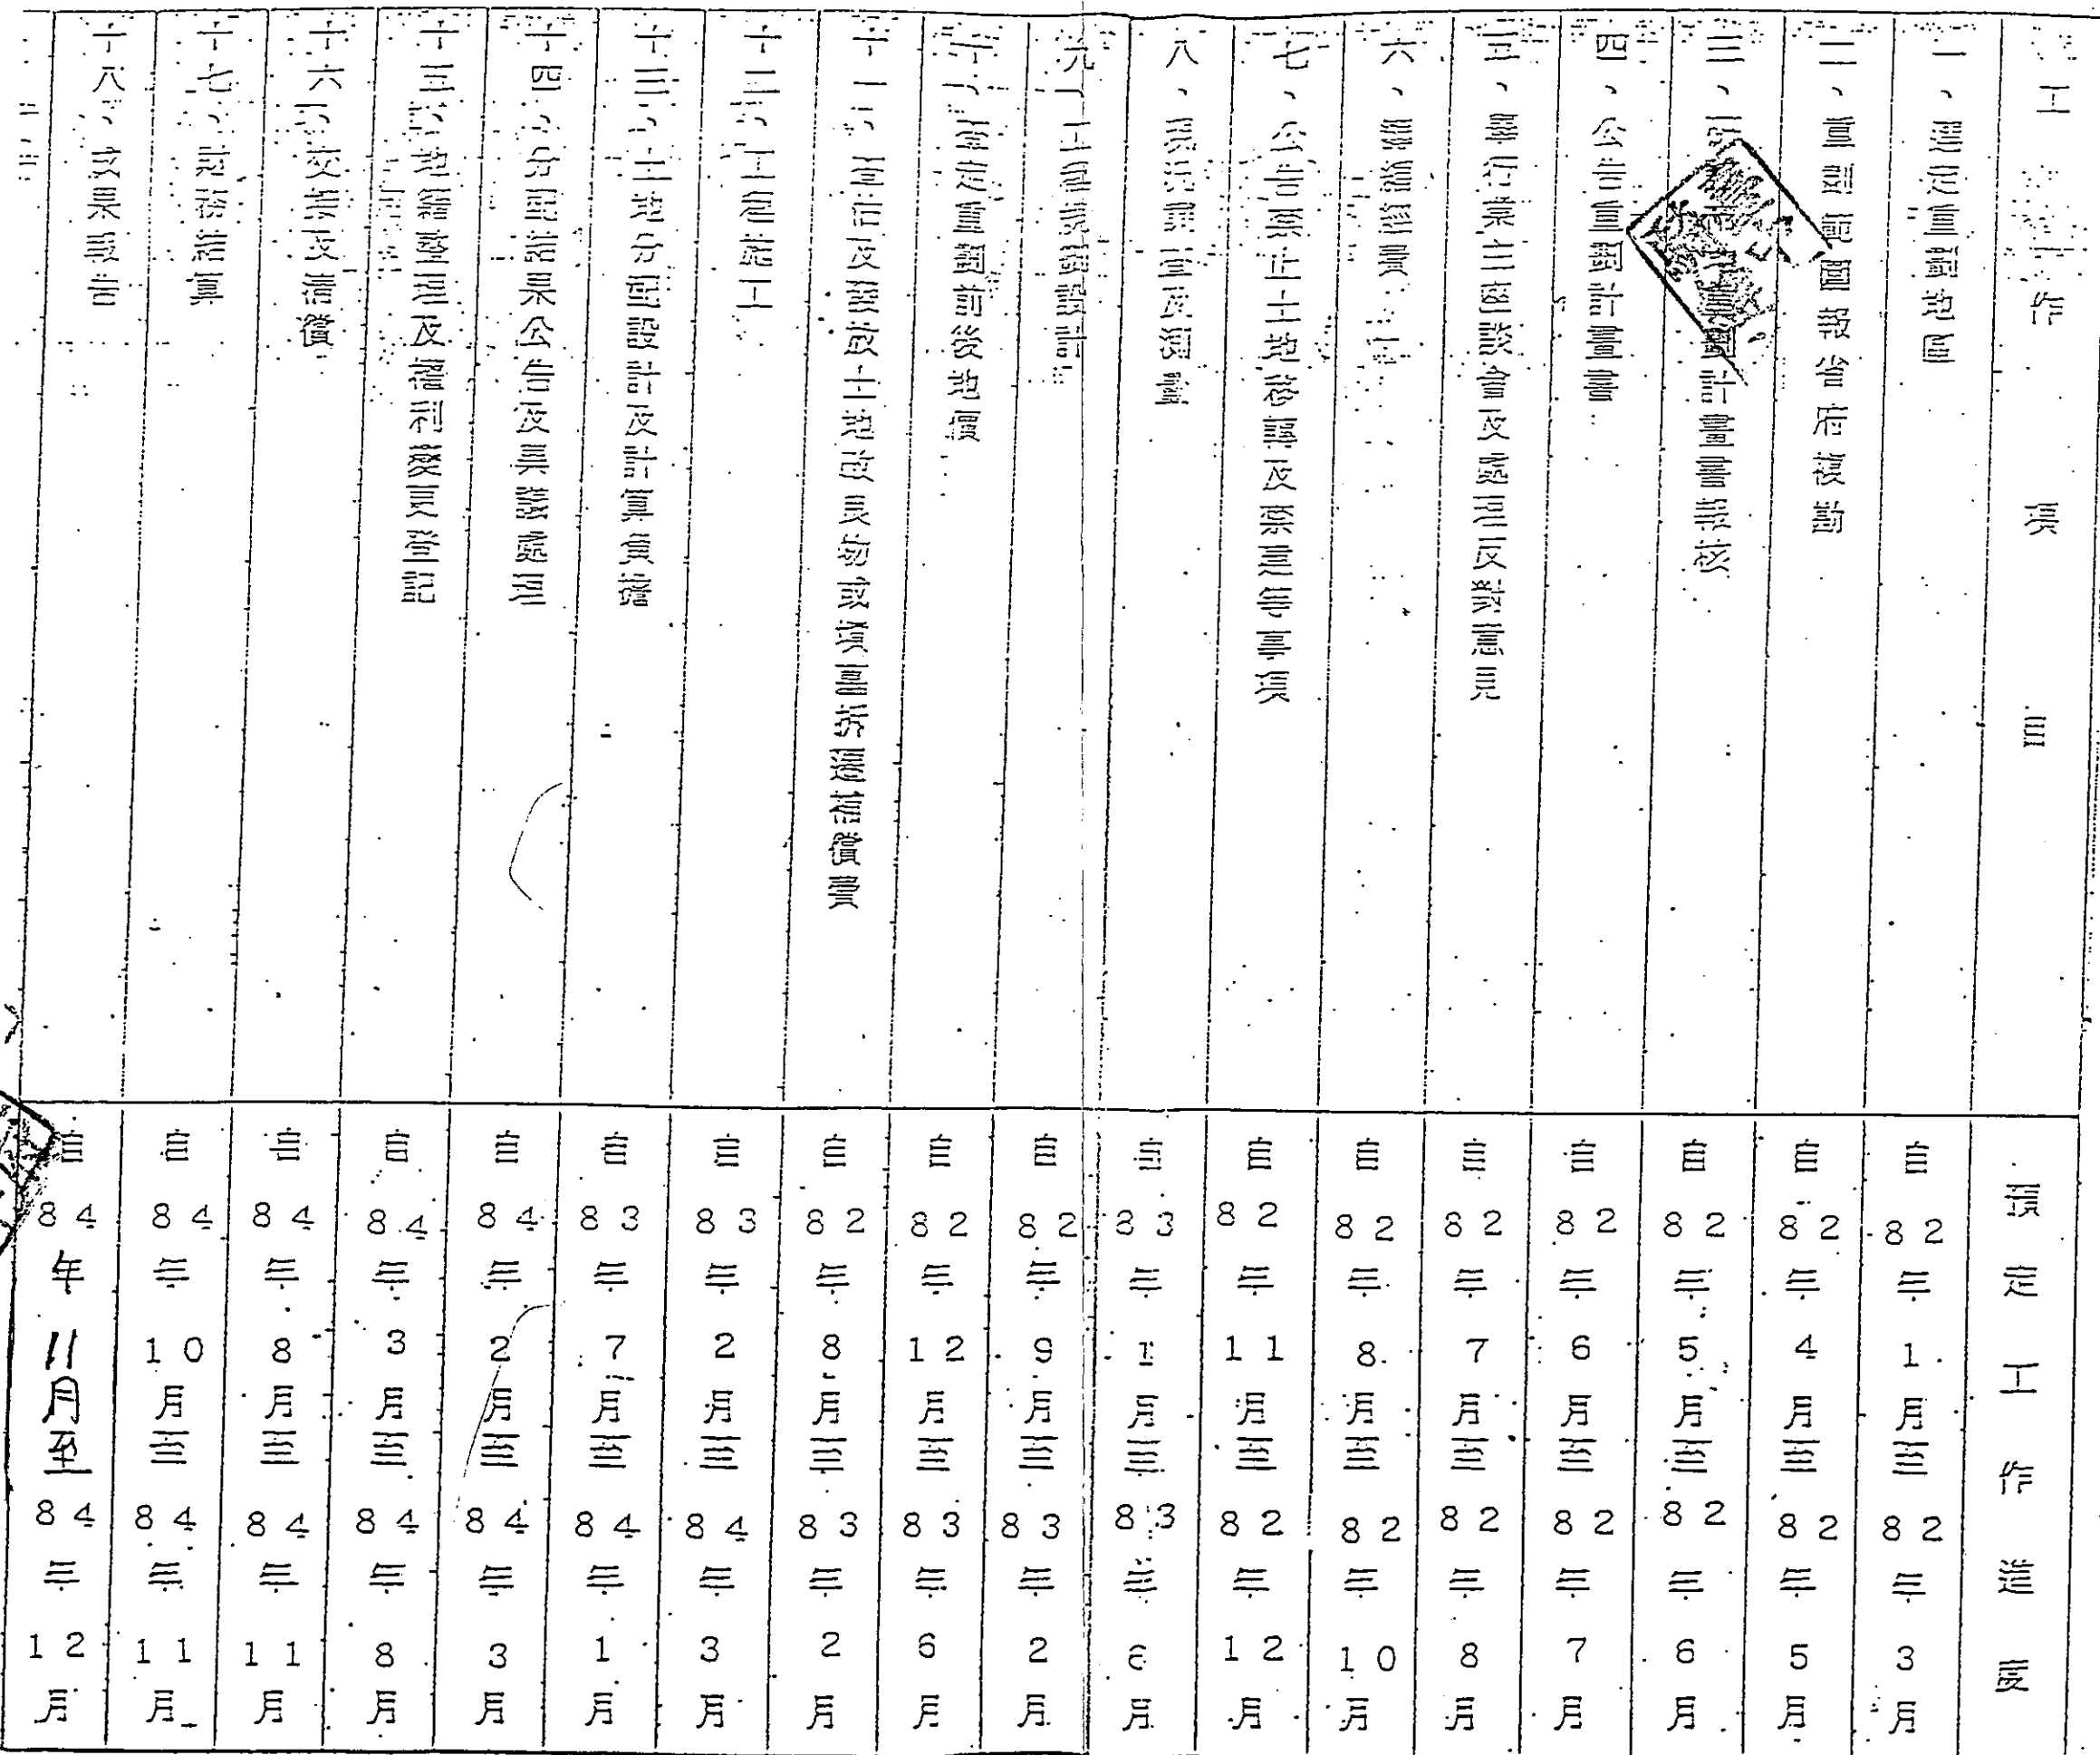 工作項目　預定工作進度
一、選定重劃地區　自82年1月至82年3月
二、重劃範圍報省府複勘　自82年4月至82年5月
三、計畫書報核　自82年5月至82年6月
四、公告重劃計畫書　自82年6月至82年7月
五、舉行業主座談會及處理反對意見　自82年7月至82年8月
六、籌措經費　自82年8月至82年10月
七、公告禁止土地移轉及禁建等事項　自82年11月至82年12月
八、現況調查及測量　自83年1月至83年6月
九、工程規劃設計　自82年9月至83年2月
十、查定重劃前後地價　自82年12月至83年6月
十一、查估及發放土地改良物或墳墓拆遷補償費　自82年8月至83年2月
十二、工程施工　自83年2月至84年3月
十三、土地分配設計及計算負擔　自83年7月至84年1月
十四、分配結果公告及異議處理　自84年2月至84年3月
十五、地籍整理及權利變更登記　自84年3月至84年8月
十六、交接及清償　自84年8月至84年11月
十七、財務結算　自84年10月至84年11月
十八、成果報告　自84年11月至84年12月